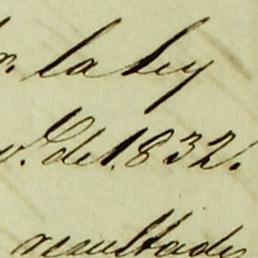 la Ley
de 1832.
resultado